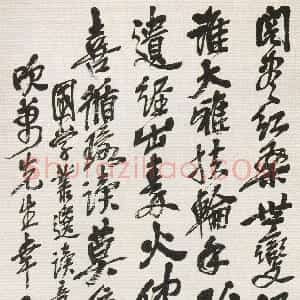 閱盡紅桑世變
誰大雅扶輪手
遺經出秦火
喜循環讀莫
國學叢選讀
吹萬先生幸
shufaziliao.com